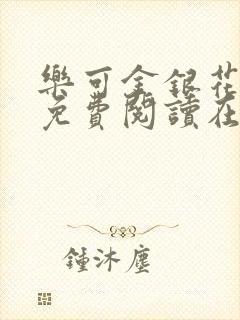 樂可金銀花
免費閱讀在
鍾沐塵